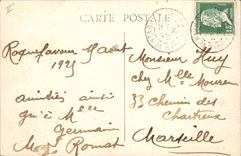 CARTE POSTALE
Roquefavour 5 Aout
1925
amitiés ainsi
qu'à Mlle
Germain
Monsieur Huy
chez Mlle Mouren
33 Chemin des
Chartreux
Marseille